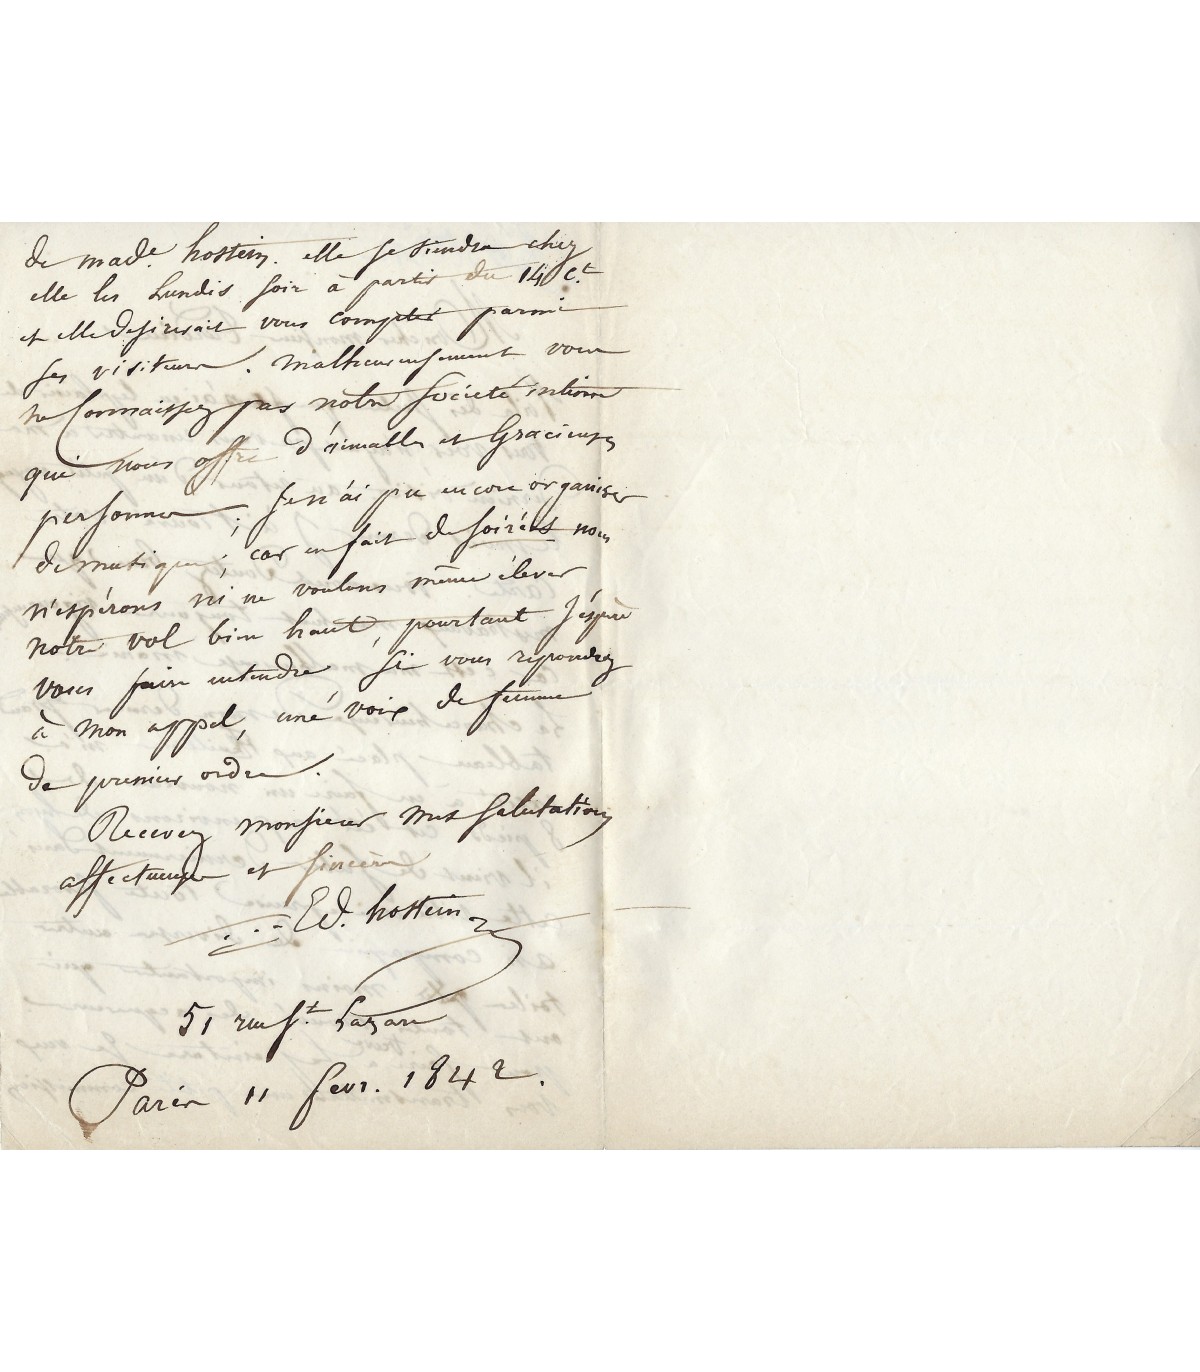 de made. hostein. elle se tiendra chez
elle les Lundis soir à partir du 14 Ct.
et elle desirerait vous compter parmi
ses visiteurs. Malheureusement vous
ne Connaissez pas nôtre Société intime
qui nous offre d'aimables et Gracieuses
personnes; Je n'ai pu encore organiser
de musique; car en fait de soirées nous
n'espérons ni ne voulons même élever
notre vol bien haut, pourtant J'espère
vous faire entendre si vous repondez
à mon appel, une voix de femme
de premier ordre.
Recevez monsieur mes Salutations
affectueuses et sincères
Ed. hostein
51 rue St. Lazare
Paris 11 fevr. 1842.